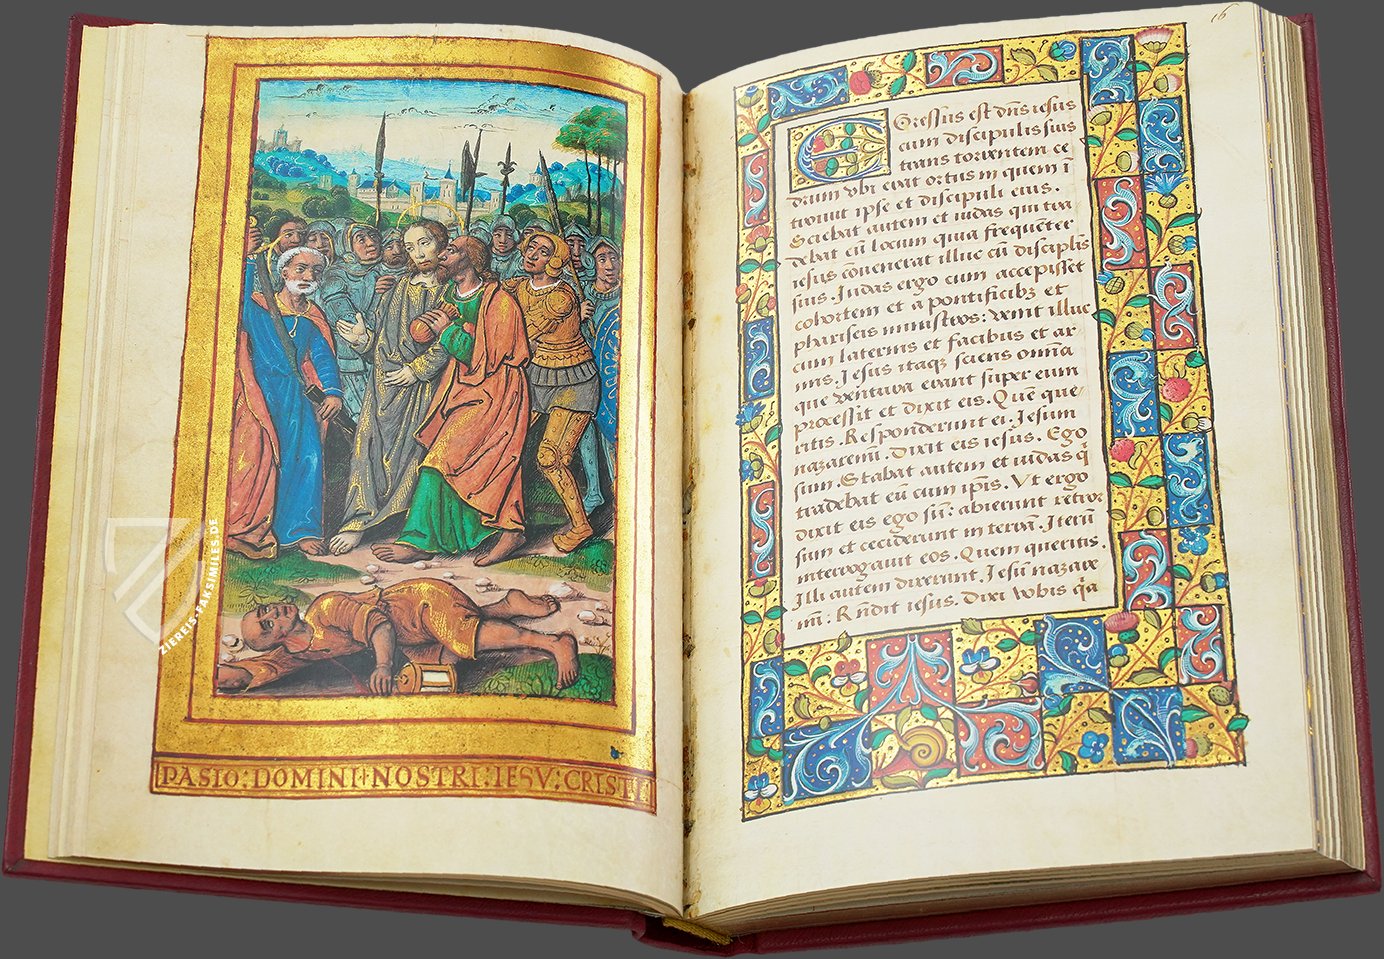 PASIO : DOMINI + NOSTRI : IESV : CRISTI
16
EGressus est dns iesus
cum discipulis suis
trans torrentem ce
drum vbi erat ortus in quem ī
troiuit ipse et discipuli eius.
Sciebat autem et iudas qui tra
debat eū locum quia frequēter
iesus cōuenerat illuc cū disciplis
suis. Iudas ergo cum accepisset
cohortem et a pontificibz et
phariseis ministros: venit illuc
cum laternis et facibus et ar
mis. Iesus itaqz sciens omnia
que ventura erant super eum
processit et dixit eis. Quē que
ritis. Responderunt ei. Iesum
nazarenū. Dixit eis iesus. Ego
sum. Stabat autem et iudas q̄
tradebat eū cum ipsis. Vt ergo
dixit eis ego sū: abierunt retror
sum et ceciderunt in terrā. Iterū
interrogauit eos. Quem queritis.
Illi autem dixerunt. Iesū nazare
nū: Rn̄dit iesus. Dixi vobis q̄a
ZIEREIS-FAKSIMILES.DE